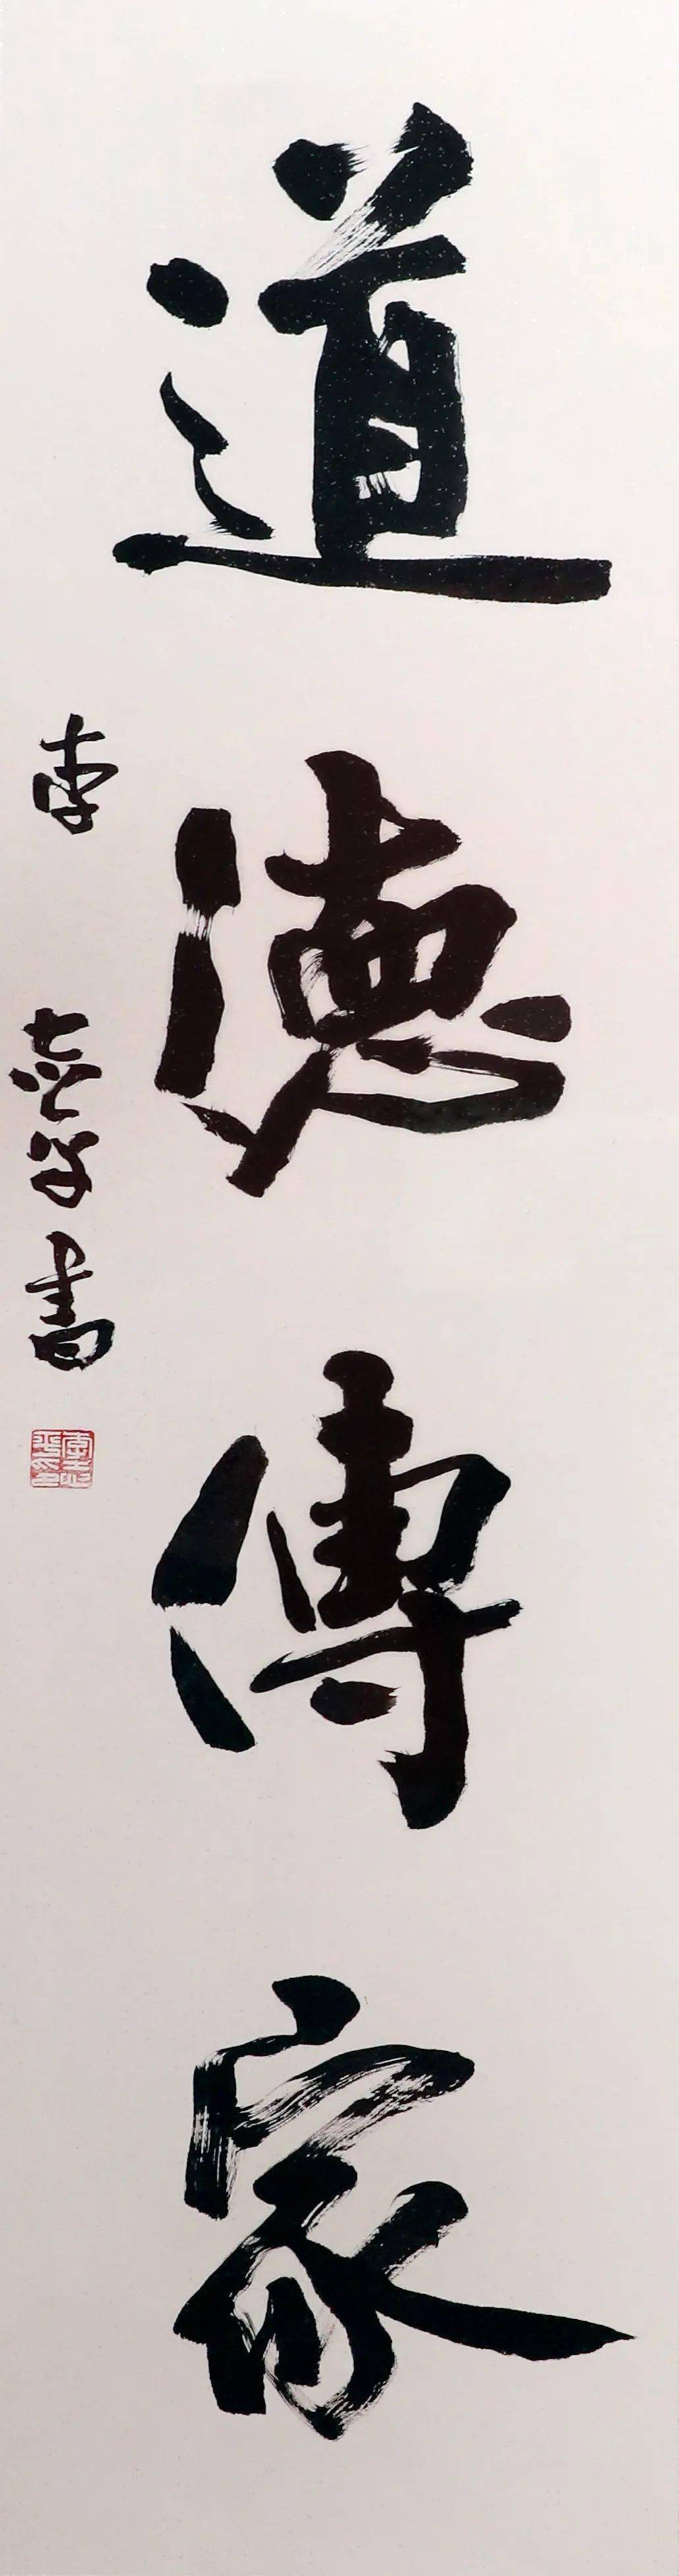 道德傳家
李志平書